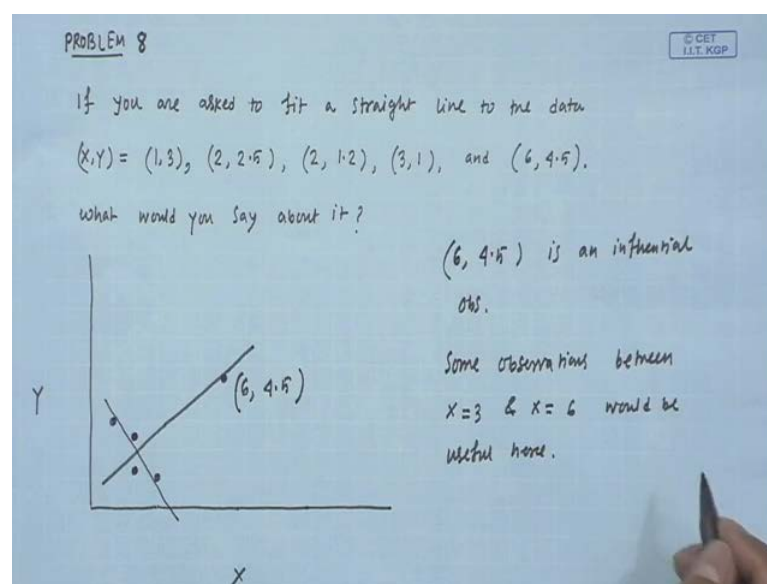 PROBLEM 8
© CET
I.I.T. KGP
If you are asked to fit a straight line to the data
(X,Y) = (1,3), (2, 2.5), (2, 1.2), (3,1), and (6, 4.5).
What would you say about it?
(6, 4.5) is an influential
obs.
Some observations between
X=3 & X=6 would be
useful here.
Y
(6, 4.5)
X